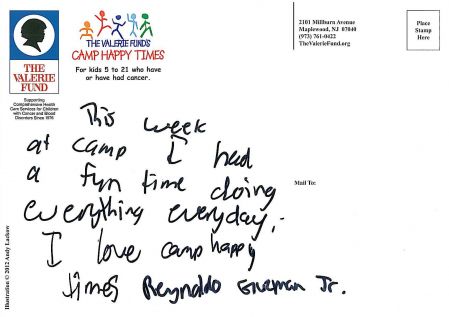 THE VALERIE FUND'S
CAMP HAPPY TIMES
For kids 5 to 21 who have
or have had cancer.
THE
VALERIE
FUND
Supporting
Comprehensive Health
Care Services for Children
with Cancer and Blood
Disorders Since 1976
2101 Millburn Avenue
Maplewood, NJ 07040
(973) 761-0422
TheValerieFund.org
Place
Stamp
Here
This week
at camp I had
a fun time doing
everything everyday.
I love camp happy
times Reynaldo Guzman Jr.
Mail To:
Illustration © 2012 Andy Lackow